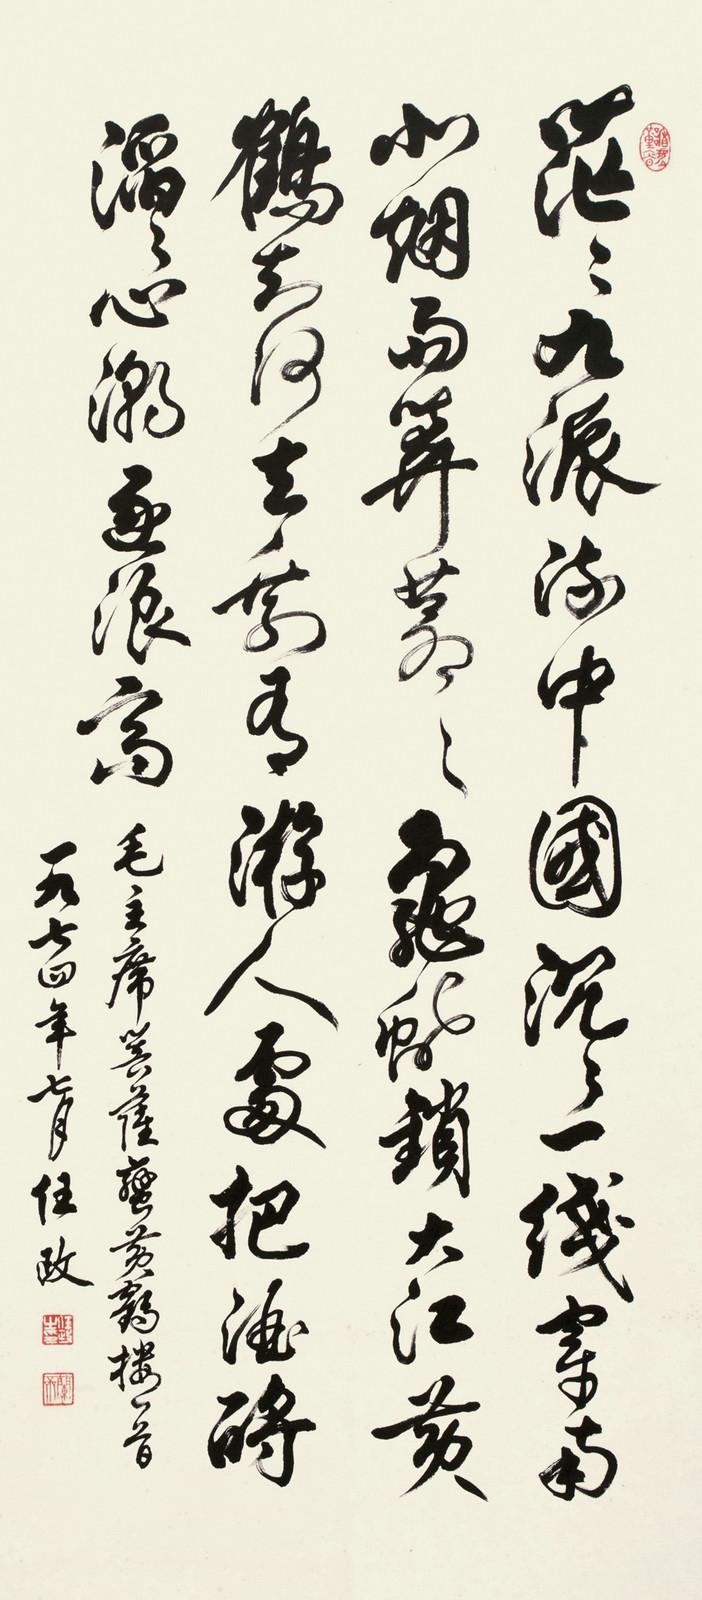 茫〻九派流中國沉〻一线穿南
北烟雨莽苍〻龟蛇鎖大江黄
鶴知何去剩有游人處把酒酹
滔〻心潮逐浪高
毛主席菩薩蠻黄鶴楼一首
一九七四年七月任政